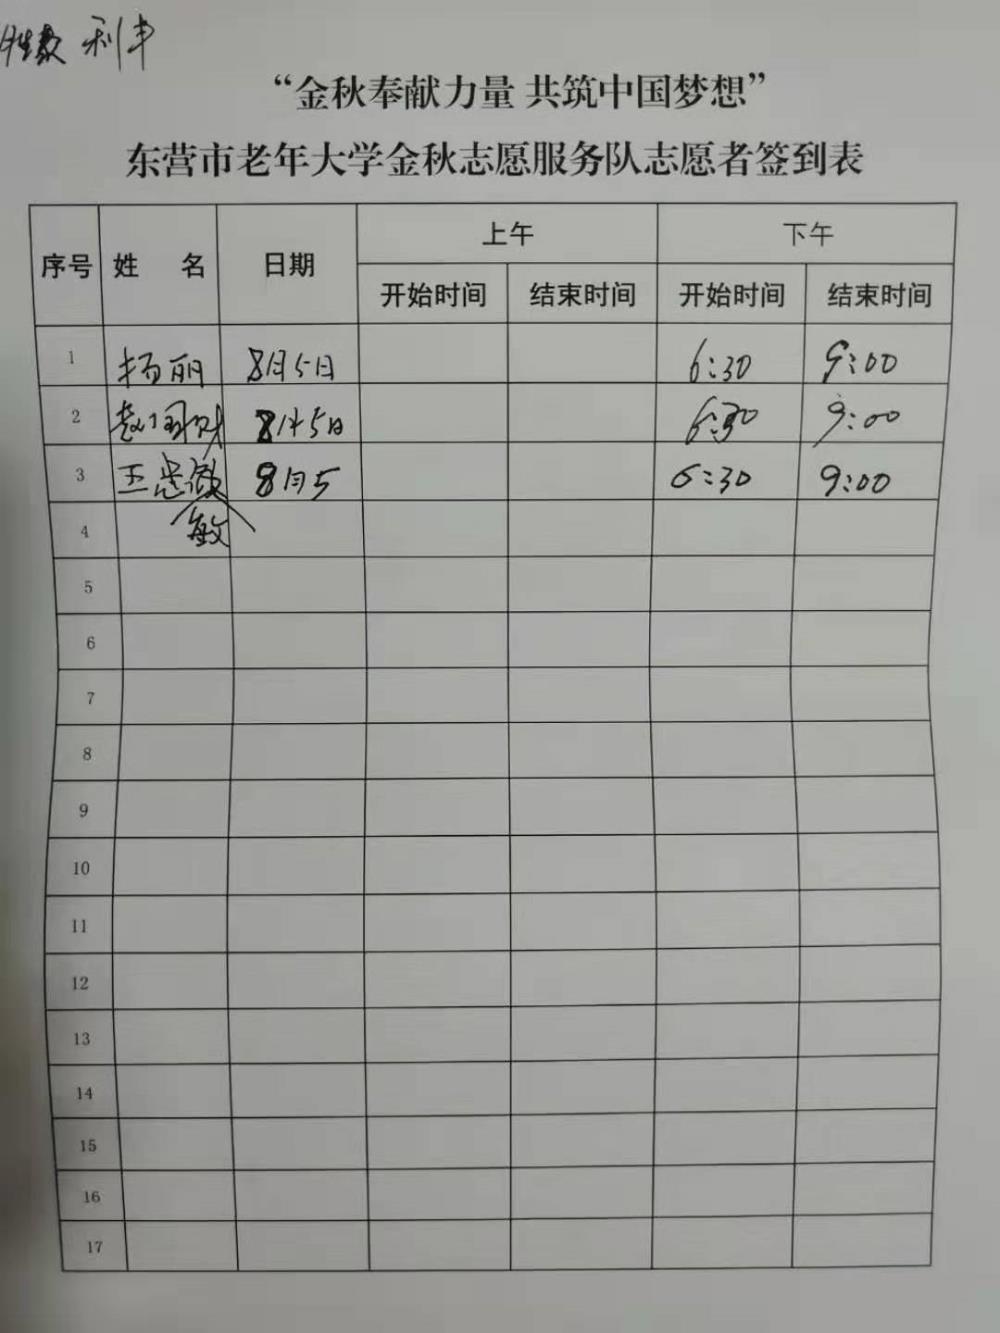 利丰
“金秋奉献力量 共筑中国梦想”
东营市老年大学金秋志愿服务队志愿者签到表
序号 姓 名 日期 上午 下午
开始时间 结束时间 开始时间 结束时间
1 杨丽 8月5日 6:30 9:00
2 8月5日 6:30 9:00
3 王忠敏 8月5 6:30 9:00
敏
4
5
6
7
8
9
10
11
12
13
14
15
16
17